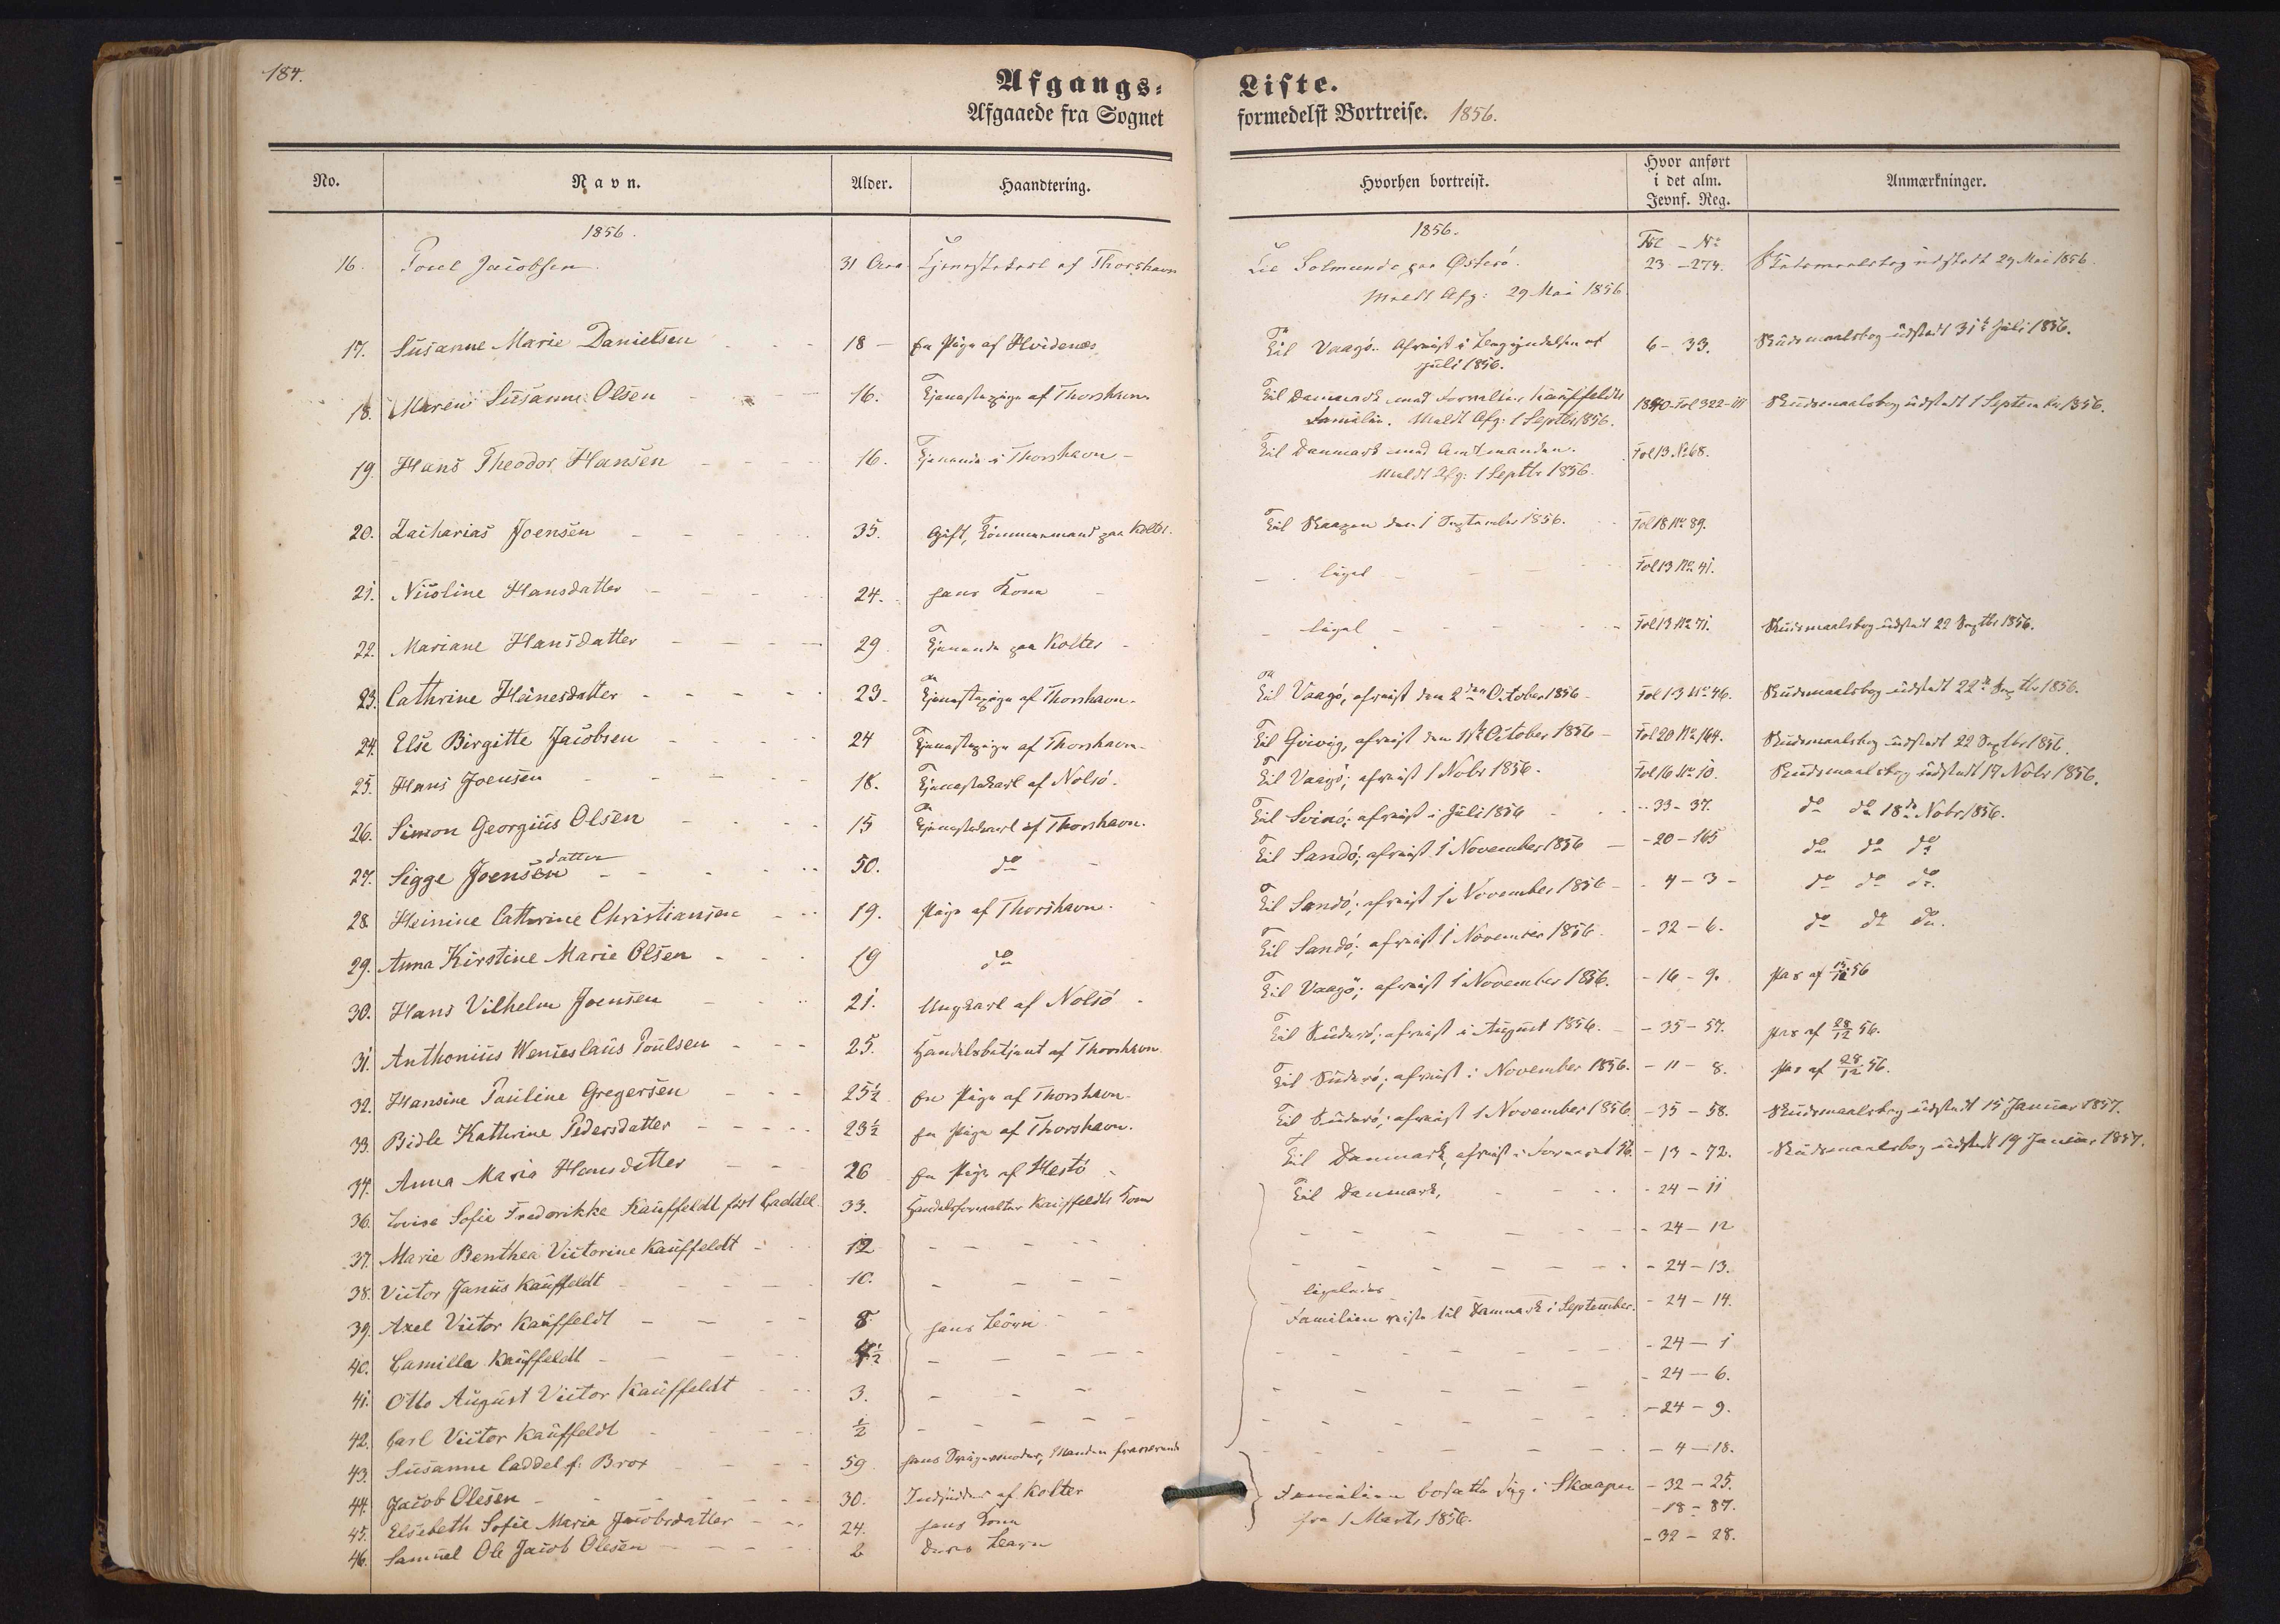 184.
Afgangs=
Liste.
Afgaaede fra Sognet
formedelst Bortreise. 1856.
No. Navn. Alder. Haandtering. Hvorhen bortreist. Hvor anført i det alm. Jevnf. Reg. Anmærkninger.
1856. 1856. Fol - No
16. Poul Jacobsen 31 Aar Tjenestekarl af Thorshavn Til Solmunde paa Østerö. 23 - 274. Skudsmaalsbog udstedt 29 Mai 1856.
Meldt Afg: 29 Mai 1856.
17. Susanne Marie Danielsen 18 - en Pige af Hvidenæs Til Vaagö. Afreist i Begyndelsen af 6 - 33. Skudsmaalsbog udstedt 31te Juli 1856.
Juli 1856.
18. Maren Susanne Olsen 16. Tjenestepige af Thorshavn. Til Danmark med Forvalter Kauffeldts 1840-Fol 322- Skudsmaalsbog udstedt 1 September 1856.
Familie. Meldt Afg: 1 Septbr 1856.
19. Hans Theodor Hansen 16. Tjenende i Thorshavn - Til Danmark med Amtmanden. Fol 13 No 68.
Meldt Afg: 1 Septbr 1856.
20. Zacharias Joensen 35. Gift, Tömmermand paa Kolter. Til Skaapen den 1 September 1856. Fol 18 No 89.
21. Nicoline Hansdatter 24. hans Kone - ligel - Fol 13 No 41.
22. Mariane Hansdatter 29 Tjenende paa Kolter - - ligel - Fol 13 No 71. Skudsmaalsbog udstedt 22 Septbr 1856.
23. Cathrine Heinesdatter 23. Tjenestepige af Thorshavn. Til Vaagö, afreist den 2den October 1856 - Fol 13 No 46. Skudsmaalsbog udstedt 22de Septbr 1856.
24. Else Birgitte Jacobsen 24 Tjenestepige af Thorshavn - Til Qvivig, afreist den 1ste October 1856 - Fol 20 No 164. Skudsmaalsbog udstedt 22 Septbr 1856.
25. Hans Joensen 18. Tjenestekarl af Nolsö. Til Vaagö; afreist i Nobr 1856. Fol 16 No 10. Skudsmaalsbog udstedt 17 Nobr 1856.
26. Simon Georgius Olsen 15 Tjenestekarl af Thorshavn. Til Svinö; afreist i Juli 1856 - 33 - 37. do do 18de Nobr 1856.
27. Sigge Joensendatter 50. do - Til Sandö; afreist i November 1856 - 20 - 165 do do do
28. Heinine Cathrine Christiansen 19. Pige af Thorshavn. Til Sandö; afreist i November 1856 - 4 - 3 - do do do.
29. Anna Kirstine Marie Olsen 19 do Til Sandö; afreist i November 1856. - 32 - 6. do do do.
30. Hans Vilhelm Joensen 21. Ungkarl af Nolsö - Til Vaagö; afreist i November 1856. - 16 - 9. Pas af 15/12 56
31. Anthonius Wenceslaus Poulsen 25. Handelsbetjent af Thorshavn Til Suderö; afreist i August 1856. - 35 - 57. Pas af 28/12 56.
32. Hansine Pauline Gregersen 25½ en Pige af Thorshavn. Til Suderö; afreist i November 1856. - 11 - 8. Pas af 28/12 56.
33. Bidle Kathrine Pedersdatter 23½ en Pige af Thorshavn. Til Suderö; afreist i November 1856. - 35 - 58. Skudsmaalsbog udstedt 15 Januar 1857.
34. Anna Maria Hansdatter 26 en Pige af Hestö - Til Danmark, afreist i - 13 - 72. Skudsmaalsbog udstedt 19 Januar 1857.
36. Lovise Sofie Frederikke Kauffeldt født Caddel. 33. Handelsforvalter Kauffeldts Kone Til Danmark, - 24 - 11
37. Marie Benthea Victorine Kauffeldt 12 - 24 - 12
38. Victor Janus Kauffeldt 10. - 24 - 13.
39. Axel Victor Kauffeldt 8 hans Börn ligeledes Familien reiste til Danmark i September. - 24 - 14.
40. Camilla Kauffeldt 4½ - 24 - 1
41. Otto August Victor Kauffeldt 3. - 24 - 6.
42. Carl Victor Kauffeldt ½ - 24 - 9.
43. Susanne Caddel f: Brox 59 hans Svigermoder, Manden fraværende - 4 - 18.
44. Jacob Olesen 30. Indsidder af Kolter Familien bosatte sig i Skaapen - 32 - 25.
45. Elsebeth Sofie Maria Jacobsdatter 24. hans Kone fra 1 Marts 1856. - 18 - 87.
46. Samuel Ole Jacob Olesen 2 Deres Barn - 32 - 28.